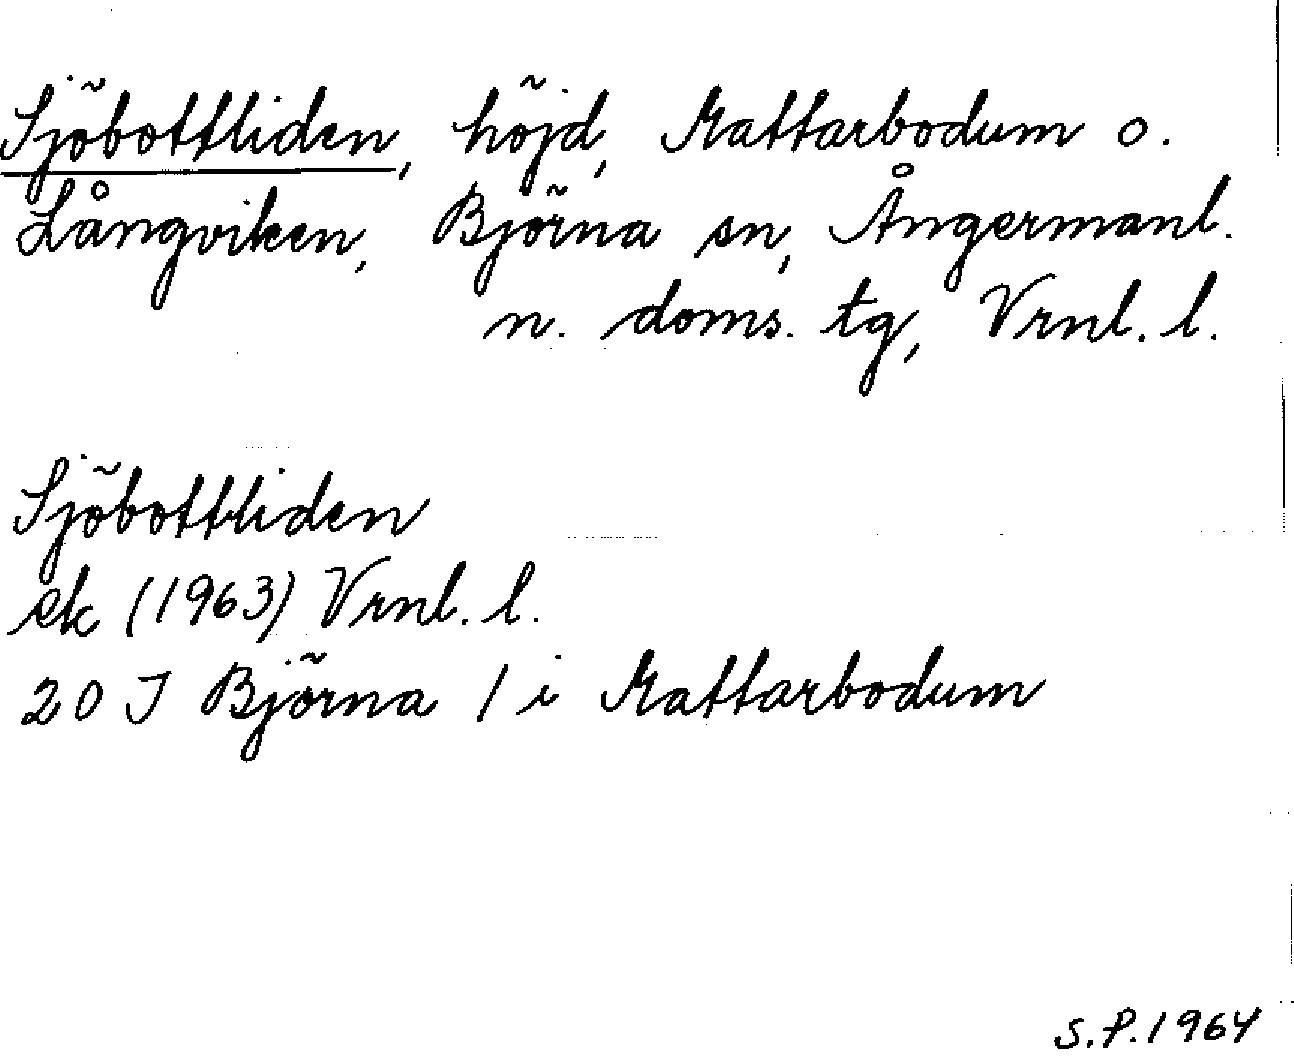 Sjöbottliden, höjd, Mattarbodum o.
Långviken, Björna sn, Ångermanl.
n. doms. tg, Vrnl. l.
Sjöbottliden
ek (1963) Vrnl. l.
20 J Björna / i Mattarbodum
S.P. 1964